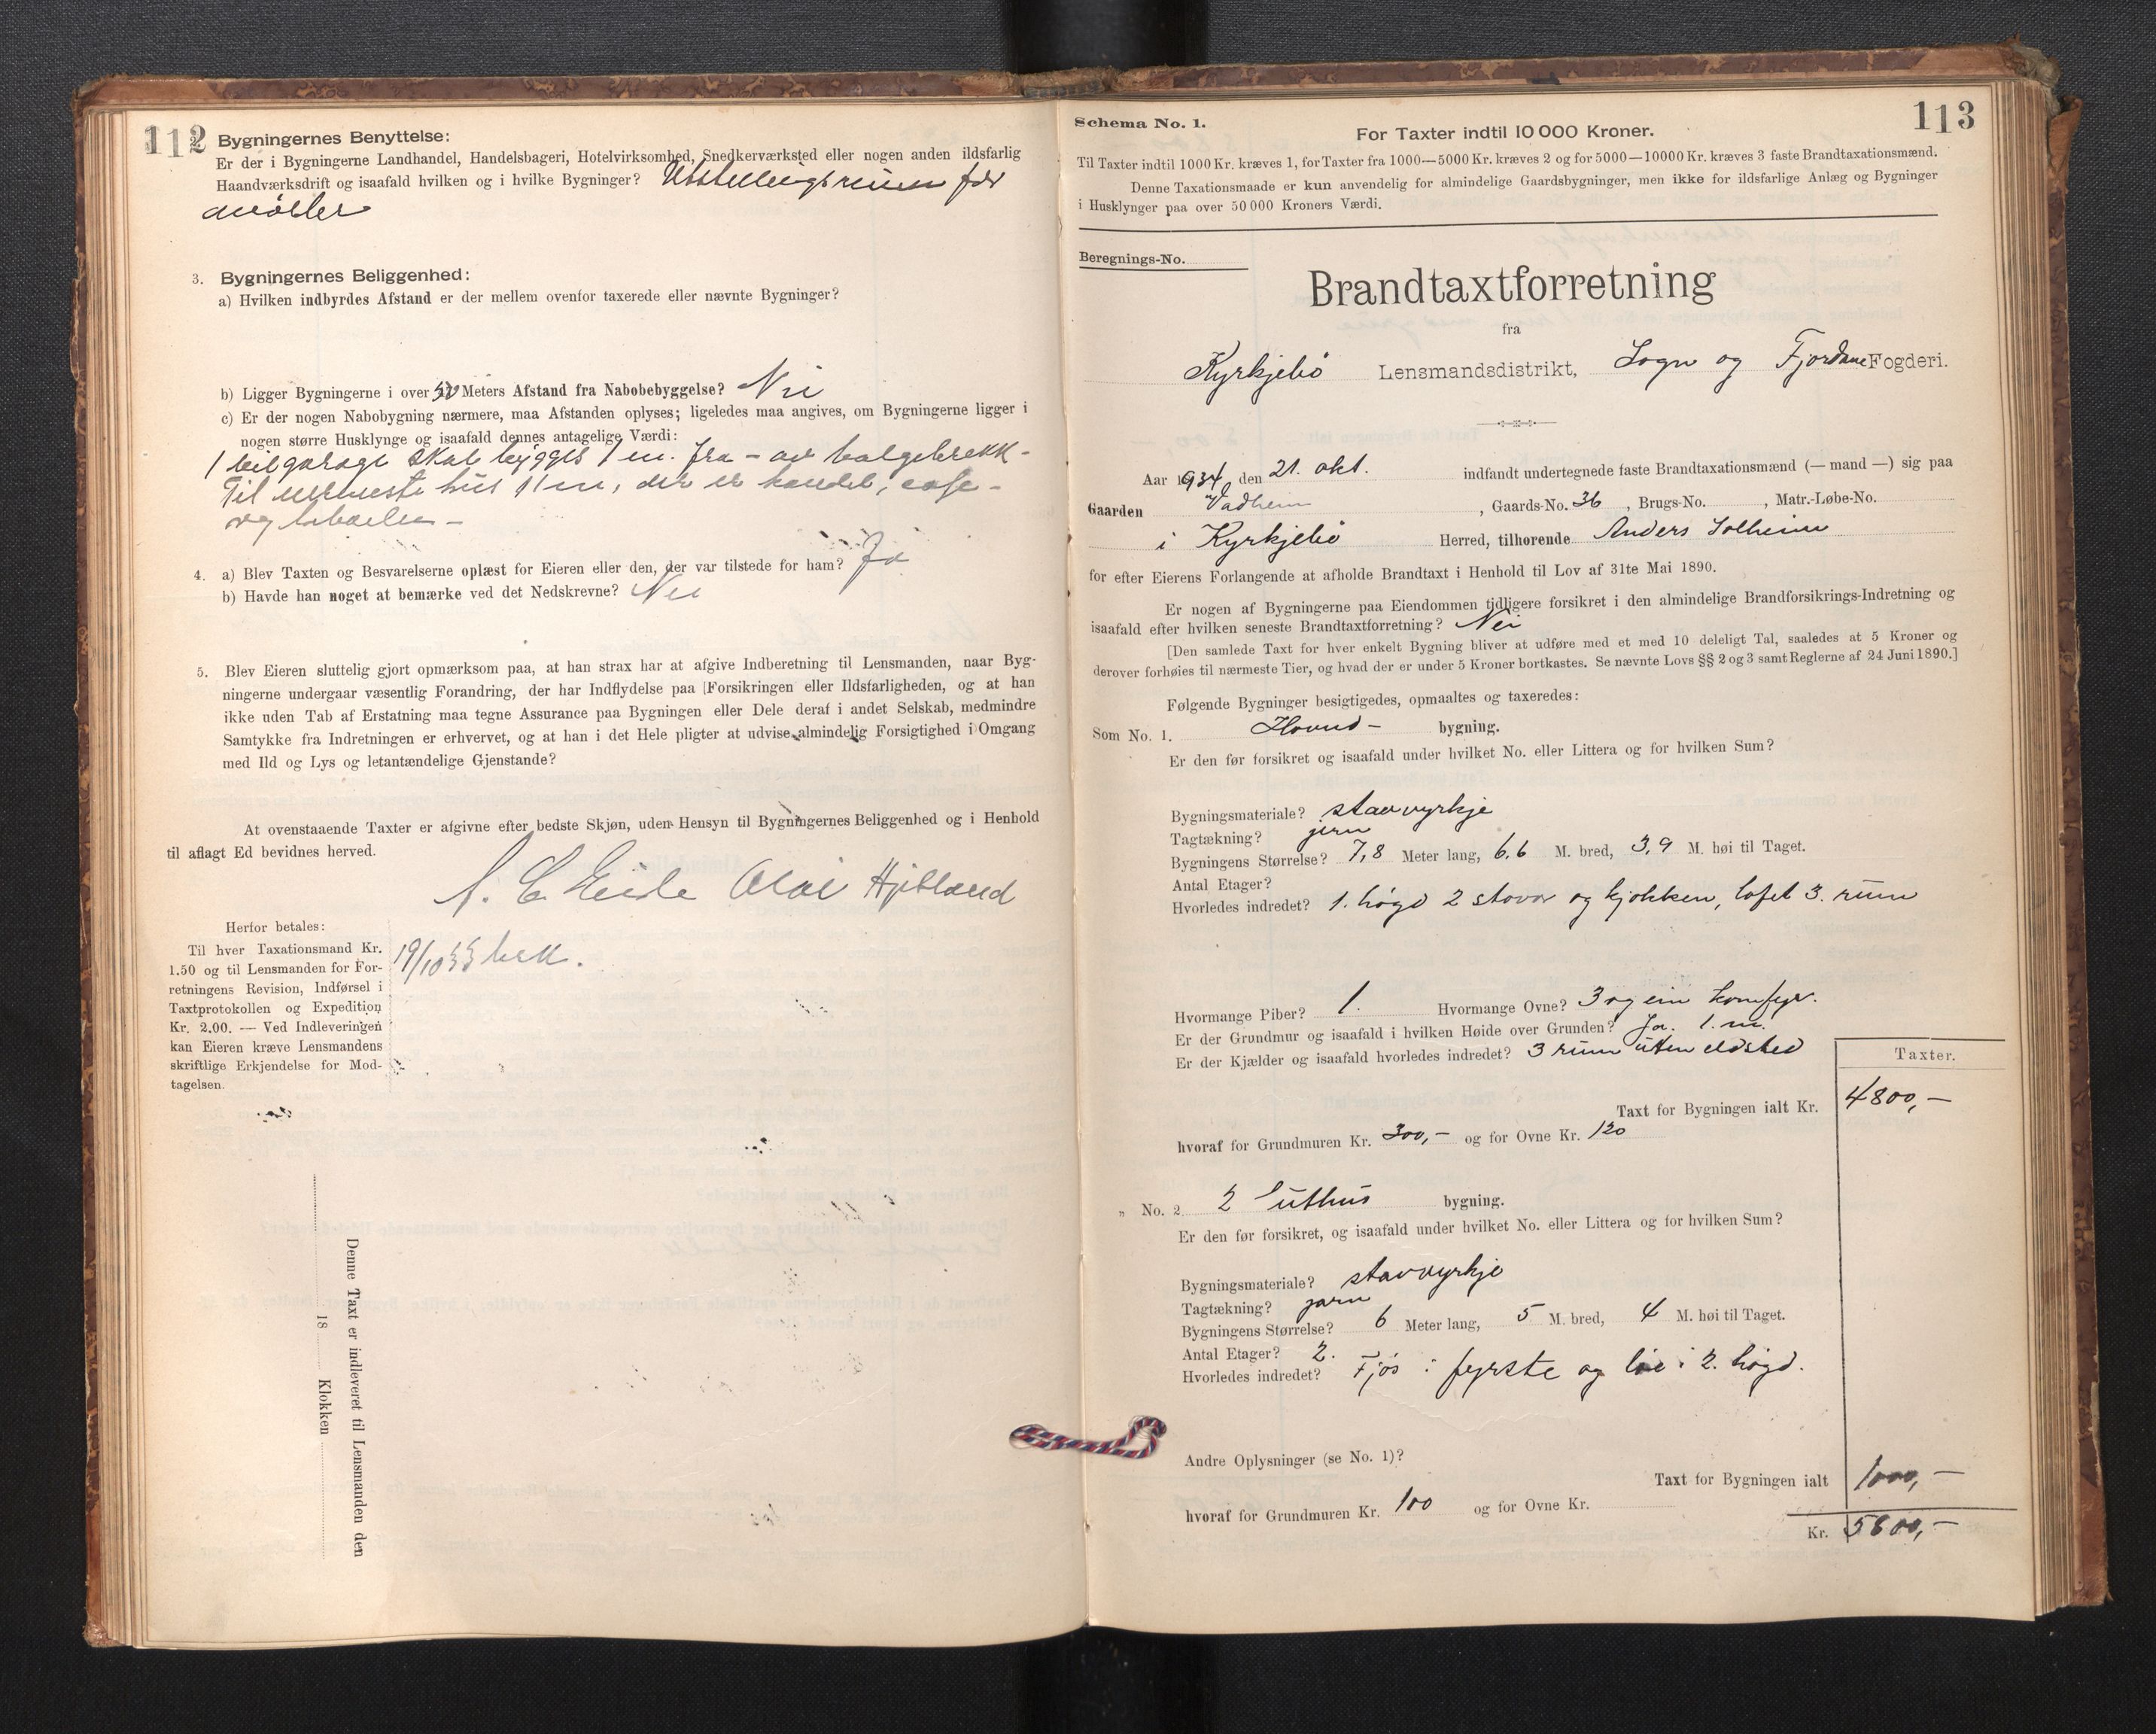 112
Bygningernes Benyttelse:
Er der i Bygningerne Landhandel, Handelsbageri, Hotelvirksomhed, Snedkerværksted eller nogen anden ildsfarlig
Haandværksdrift og isaafald hvilken og i hvilke Bygninger? Utstillingsrum for
møbler
3. Bygningernes Beliggenhed:
a) Hvilken indbyrdes Afstand er der mellem ovenfor taxerede eller nævnte Bygninger?
b) Ligger Bygningerne i over 50 Meters Afstand fra Nabobebyggelse? Nei
c) Er der nogen Nabobygning nærmere, maa Afstanden oplyses; ligeledes maa angives, om Bygningerne ligger i
nogen større Husklynge og isaafald dennes antagelige Værdi:
1 bilgarage skal bygges 1 m. fra - av
Til nærmeste hus 11 m, der er handel, cafe -
og
4. a) Blev Taxten og Besvarelserne oplæst for Eieren eller den, der var tilstede for ham? Ja
b) Havde han noget at bemærke ved det Nedskrevne? Nei
5. Blev Eieren sluttelig gjort opmærksom paa, at han strax har at afgive Indberetning til Lensmanden, naar Byg-
ningerne undergaar væsentlig Forandring, der har Indflydelse paa Forsikringen eller Ildsfarligheden, og at han
ikke uden Tab af Erstatning maa tegne Assurance paa Bygningen eller Dele deraf i andet Selskab, medmindre
Samtykke fra Indretningen er erhvervet, og at han i det Hele pligter at udvise almindelig Forsigtighed i Omgang
med Ild og Lys og letantændelige Gjenstande?
At ovenstaaende Taxter er afgivne efter bedste Skjøn, uden Hensyn til Bygningernes Beliggenhed og i Henhold
til aflagt Ed bevidnes herved.
Eide Olai Hjetland
Herfor betales:
Til hver Taxationsmand Kr.
1.50 og til Lensmanden for For-
retningens Revision, Indførsel i
Taxtprotokollen og Expedition
Kr. 2.00. — Ved Indleveringen
kan Eieren kræve Lensmandens
skriftlige Erkjendelse for Mod-
tagelsen.
19/10 33
Denne Taxt er indleveret til Lensmanden den
18 Klokken
113
Schema No. 1.
For Taxter indtil 10 000 Kroner.
Til Taxter indtil 1000 Kr. kræves 1, for Taxter fra 1000—5000 Kr. kræves 2 og for 5000—10000 Kr. kræves 3 faste Brandtaxationsmænd.
Denne Taxationsmaade er kun anvendelig for almindelige Gaardsbygninger, men ikke for ildsfarlige Anlæg og Bygninger
i Husklynger paa over 50 000 Kroners Værdi.
Beregnings-No.
Brandtaxtforretning
fra
Kyrkjebø Lensmandsdistrikt, Sogn og Fjordane Fogderi.
Aar 1934, den 21. okt. indfandt undertegnede faste Brandtaxationsmænd (— mand —) sig paa
Gaarden Vadheim, Gaards-No. 36, Brugs-No. , Matr.-Løbe-No.
i Kyrkjebø Herred, tilhørende Anders Solheim
for efter Eierens Forlangende at afholde Brandtaxt i Henhold til Lov af 31te Mai 1890.
Er nogen af Bygningerne paa Eiendommen tidligere forsikret i den almindelige Brandforsikrings-Indretning og
isaafald efter hvilken seneste Brandtaxtforretning? Nei
[Den samlede Taxt for hver enkelt Bygning bliver at udføre med et med 10 deleligt Tal, saaledes at 5 Kroner og
derover forhøies til nærmeste Tier, og hvad der er under 5 Kroner bortkastes. Se nævnte Lovs §§ 2 og 3 samt Reglerne af 24 Juni 1890.]
Følgende Bygninger besigtigedes, opmaaltes og taxeredes:
Som No. 1. Hovud- bygning.
Er den før forsikret og isaafald under hvilket No. eller Littera og for hvilken Sum?
Bygningsmateriale? stavvyrkje
Tagtækning? jern
Bygningens Størrelse? 7,8 Meter lang, 6.6 M. bred, 3,9 M. høi til Taget.
Antal Etager?
Hvorledes indredet? 1. høgd 2 stovor og kjøkken, loftet 3. rum
Hvormange Piber? 1. Hvormange Ovne? 3 og ein komfyr.
Er der Grundmur og isaafald i hvilken Høide over Grunden? Ja. 1. m.
Er der Kjælder og isaafald hvorledes indredet? 3 rum uten eldsted
Taxter.
Taxt for Bygningen ialt Kr. 4800,-
hvoraf for Grundmuren Kr. 300,- og for Ovne Kr. 120
„ No. 2. 2 uthus bygning.
Er den før forsikret, og isaafald under hvilket No. eller Littera og for hvilken Sum?
Bygningsmateriale? stavvyrkje
Tagtækning? jarn
Bygningens Størrelse? 6 Meter lang, 5 M. bred, 4 M. høi til Taget.
Antal Etager? 2.
Hvorledes indredet? Fjøs i fyrste og løe i 2. høgd.
Andre Oplysninger (se No. 1)?
Taxt for Bygningen ialt 1000,-
hvoraf for Grundmuren Kr. 100 og for Ovne Kr.
Kr. 5800,-